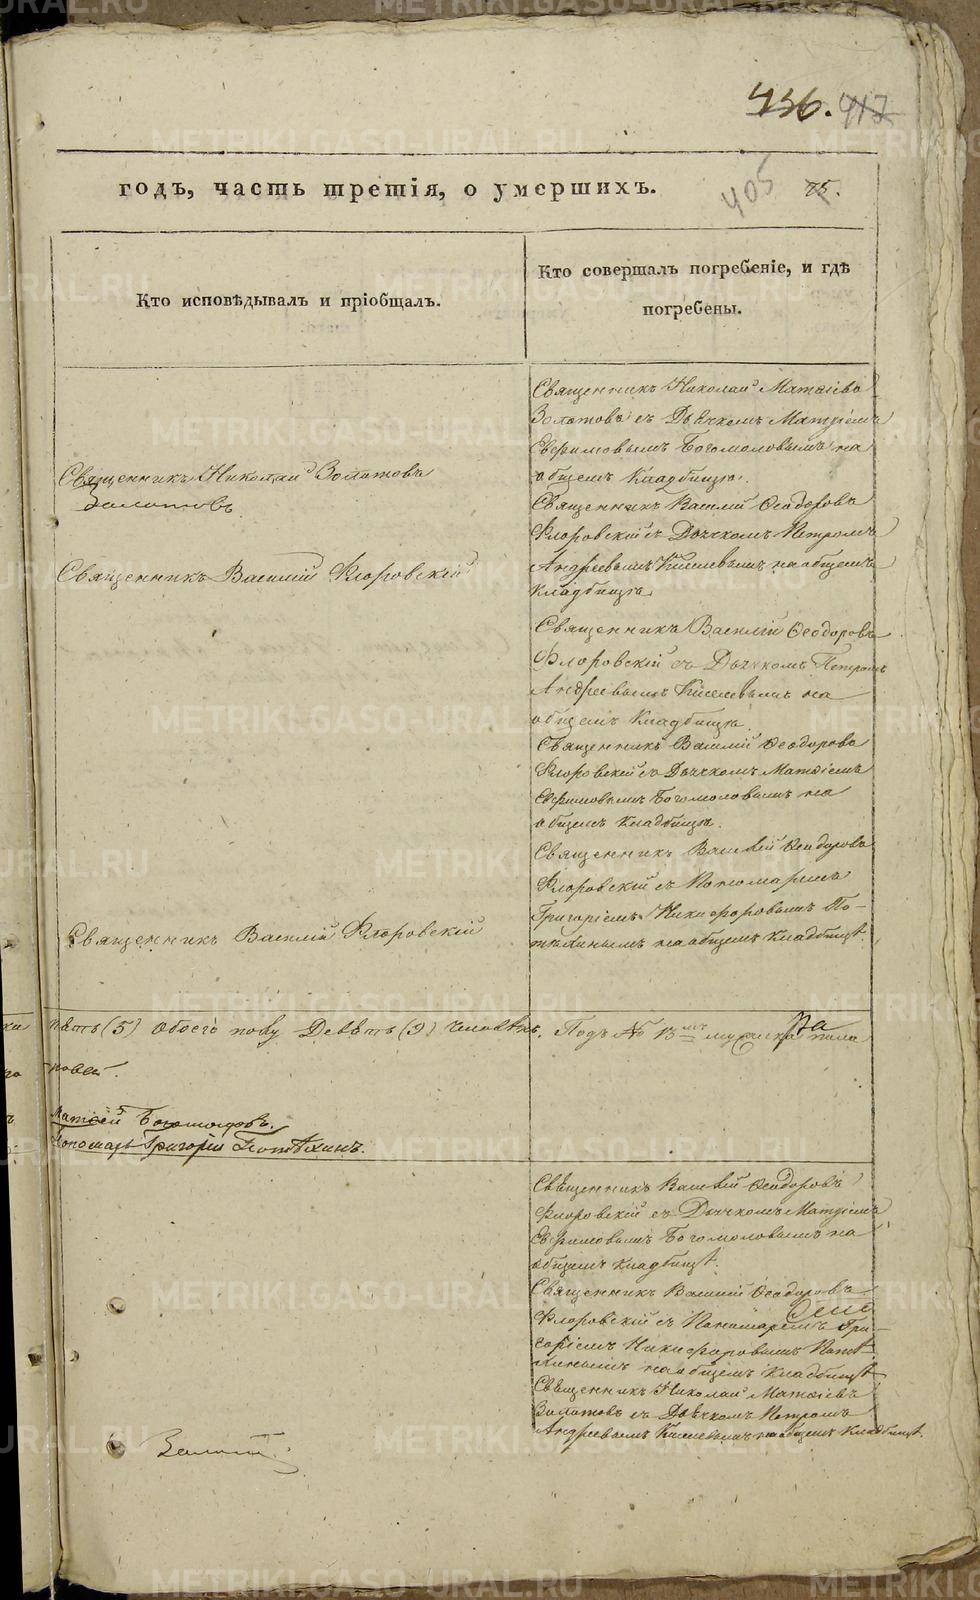 436. 417
годъ, часть третія, о умершихъ.
405
75.
Кто исповѣдывалъ и пріобщалъ.
Кто совершалъ погребеніе, и гдѣ
погребены.
Священникъ Николай Матѳіевъ
Золотовъ съ Дьячкомъ Матѳіемъ
Евѳимовымъ Богомоловымъ на
общемъ кладбищѣ.
Священникъ Николай Золотовъ
Золотовъ
Священникъ Василій Ѳеодоровъ
Флоровскій съ Дьячкомъ Петромъ
Андреевымъ Киселевымъ на общемъ
кладбищѣ
Священникъ Василій Флоровскій
Священникъ Василій Ѳеодоровъ
Флоровскій съ Дьячкомъ Петромъ
Андреевымъ Киселевымъ на
общемъ кладбищѣ
Священникъ Василій Ѳеодоровъ
Флоровскій съ Дьячкомъ Матѳіемъ
Евѳимовымъ Богомоловымъ на
общемъ кладбищѣ.
Священникъ Василій Ѳеодоровъ
Флоровскій съ Пономаремъ
Григоріемъ Никифоровымъ По-
тѣхинымъ на общемъ кладбищѣ.
Священникъ Василій Флоровскій
пять (5) обоего полу Девять (9) человѣкъ. Подъ № 13мъ мужска пола
Матѳей Богомоловъ.
Пономарь Григорій Потѣхинъ.
Священникъ Василій Ѳеодоровъ
Флоровскій съ Дьячкомъ Матѳіемъ
Евѳимовымъ Богомоловымъ на
общемъ кладбищѣ.
Священникъ Василій Ѳеодоровъ
Флоровскій съ Пономаремъ Гри-
горіемъ Никифоровымъ Потѣ-
хинымъ на общемъ кладбищѣ
Священникъ Николай Матѳіевъ
Золотовъ съ Дьячкомъ Петромъ
Андреевымъ Киселевымъ на общемъ кладбищѣ.
METRIKI.GASO-URAL.RU